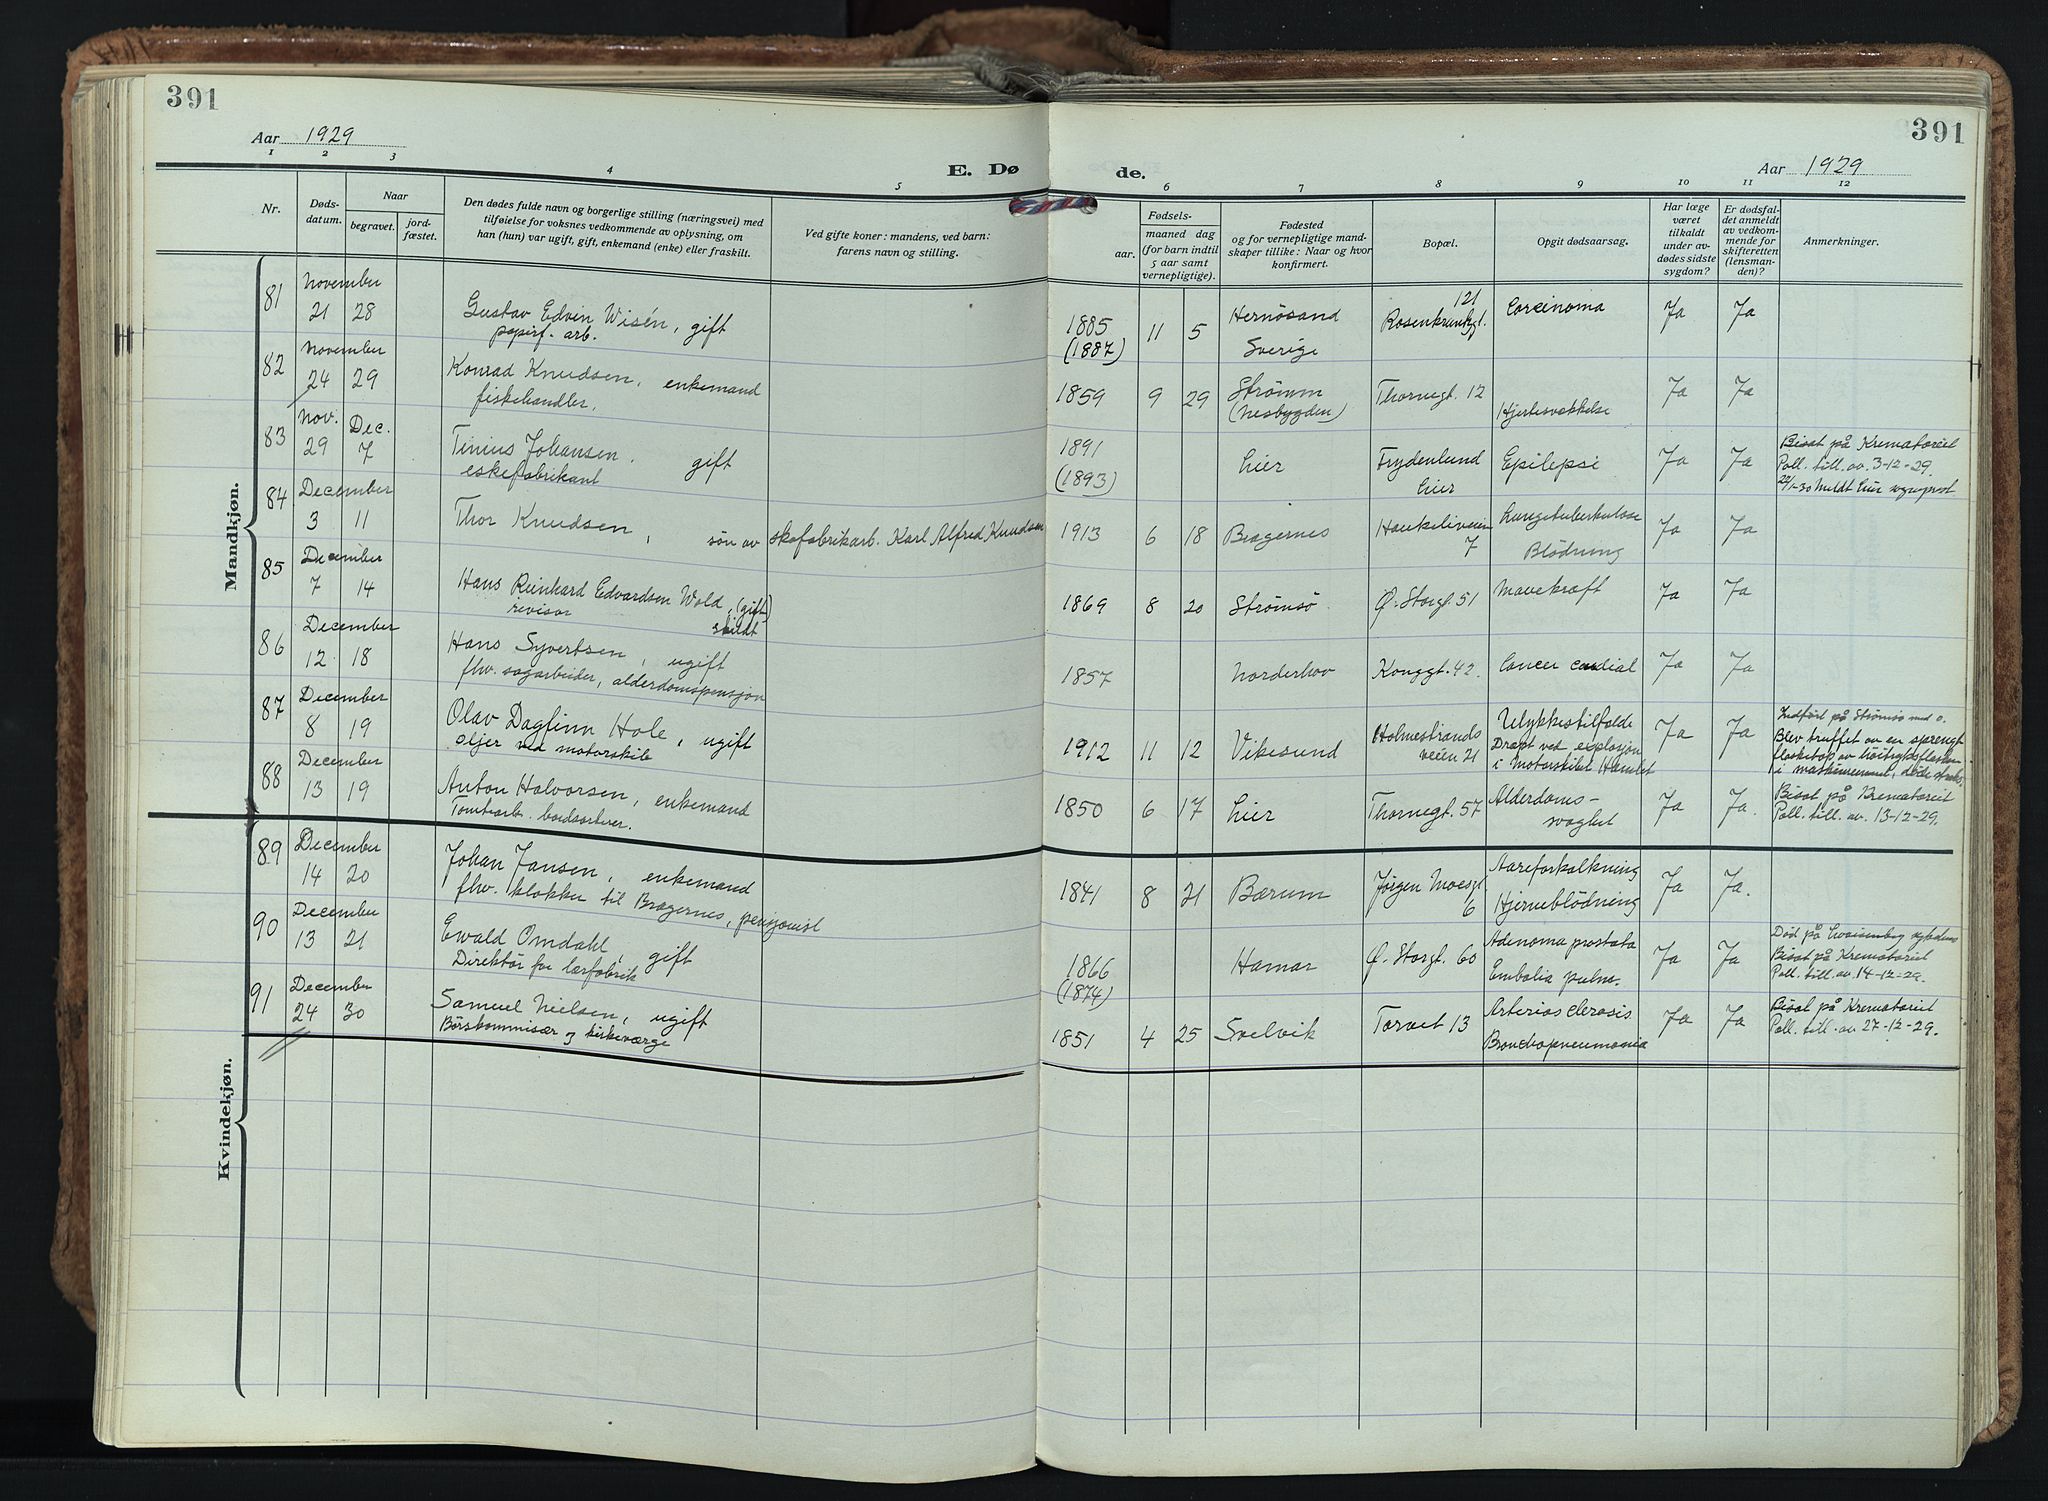 391
391
Aar 1929
Aar 1929
E. Dø
de.
1 2 3 4 5 6 7 8 9 10 11 12
Nr.
Døds-
datum.
Naar
begravet.
jord-
fæstet.
Den dødes fulde navn og borgerlige stilling (næringsvei) med
tilføielse for voksnes vedkommende av oplysning, om
han (hun) var ugift, gift, enkemand (enke) eller fraskilt.
Ved gifte koner: mandens, ved barn:
farens navn og stilling.
Fødsels-
aar.
maaned dag
(for barn indtil
5 aar samt
vernepligtige).
Fødested
og for vernepligtige mand-
skaper tillike: Naar og hvor
konfirmert.
Bopæl.
Opgit dødsaarsag.
Har læge
været
tilkaldt
under av-
dødes sidste
sygdom?
Er dødsfal-
det anmeldt
av vedkom-
mende for
skifteretten
(lensman-
den)?
Anmerkninger.
Mandkjøn.
81 November 21 28 Gustav Edvin Wisén, gift
papirf. arb.
1885 (1887) 11 5 Hernösand Sverige
121 Rosenkrantzgt. Carcinoma Ja Ja
82 November 24 29 Konrad Knudsen, enkemand
fiskehandler.
1859 9 29 Strømm (Nesbygden) Thornegt. 12 Hjertesvækkelse Ja Ja
83 Nov. 29 Dec. 7 Tinius Johansen. gift
eskefabrikant
1891 (1893) Lier Frydenlund Lier Epilepsi Ja Ja
Bisat på Krematoriet
Poll. till. av. 3-12-29.
22/1-30 Meldt Lier sogneprest
84 December 3 11 Thor Knudsen, søn av skofabrikarb. Karl Alfred Knudsen
1913 6 18 Bragernes Haukeliveien 7 Lungetuberkulose Blödning Ja Ja
85 December 7 14 Hans Reinhard Edvardsen Wold, (gift)
revisor skildt
1869 8 20 Strømsø Ø. Storgt. 51 Mavekræft Ja Ja
86 December 12 18 Hans Syvertsen, ugift
fhv. sagarbeider, alderdomspensjon
1857 Norderhov Konggt. 42. Cancer cardial Ja Ja
87 December 8 19 Olav Dagfinn Hole, ugift
oljer ved motorskib
1912 11 12 Vikesund Holmestrands veien 21
Ulykkestilfælde
Dræpt ved explosjon
i Motorskibet Hamlet Ja Ja
Indført på Strømsø med o.
Blev truffet av en sprengt
flasketop av høitryksflasken
i maskinrummet, døde straks.
88 December 13 19 Anton Halvorsen, enkemand
Tomtearb. bordsorterer.
1850 6 17 Lier Thornegt. 57 Alderdoms-
svaghet Ja Ja.
Bisat på Krematoriet
Poll. till. av. 13-12-29.
89 December 14 20 Johan Jansen, enkemand
fhv. klokker til Bragernes, pensjonist
1841 8 21 Bærum Jørgen Moesgt. 6
Aareforkalkning
Hjerneblödning Ja Ja.
90 December 13 21 Ewald Omdahl, gift
Direktör for lærfabrik
1866 (1874) Hamar Ø. Storgt. 60
Adenoma prostata
Embolia pulm. Ja Ja
Død på sykehus
Bisat på Krematoriet
Poll. till. av 14-12-29.
Kvindekjøn.
91 December 24 30 Samuel Nielsen, ugift
Börskommisær og kirkeværge
1851 4 25 Svelvik Torvet 13
Arteriosclerosis
Bronchopneumonia Ja Ja
Bisat på Krematoriet
Poll. till. av 27-12-29.